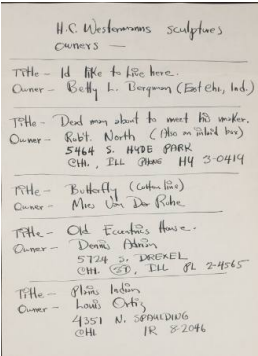 H.C. Westermanns sculptures
owners —
Title — Id like to live here.
Owner — Betty L. Bergman (East chi., Ind.)
Title — Dead man about to meet his maker.
Owner — Rob't. North (Also an inlaid box)
5464 S. HYDE PARK
CHI., ILL PHONE HY 3-0419
Title — Butterfly (Cotton line)
Owner — Mies Van Der Rohe
Title — Old Eccentrics House.
Owner — Dennis Adrian
5724 S. DREXEL
CHI. (37), ILL PL 2-4565
Title — Plains Indian
Owner — Louis Ortiz
4351 N. SPAULDING
CHI IR 8-2046